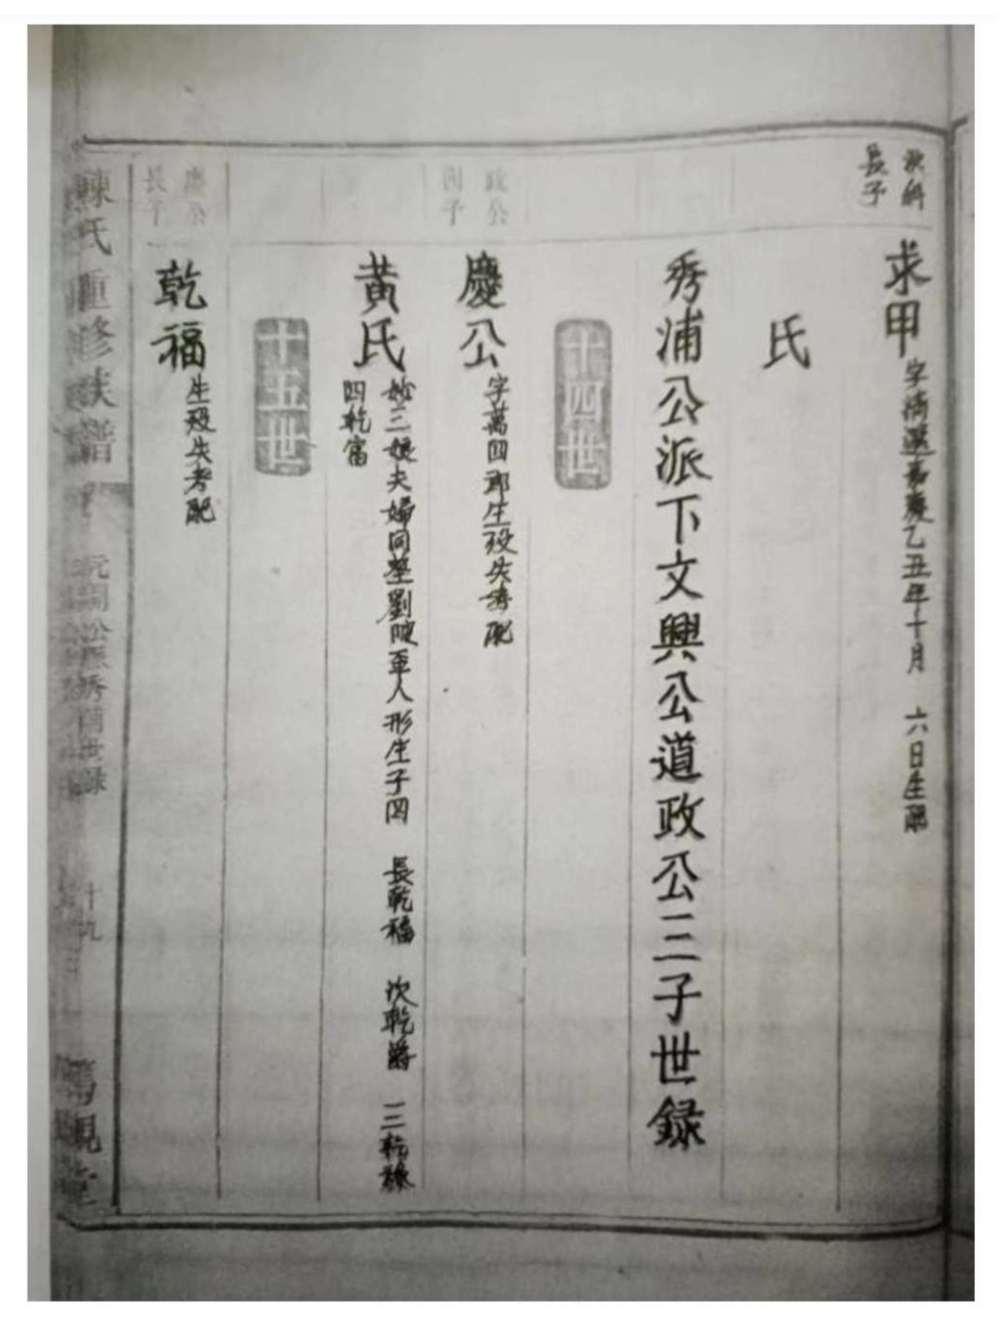 長子
求甲
字清選嘉慶乙丑年十月 六日生配
氏
秀浦公派下文興公道政公三子世録
十四世
政公
慶公
字萬四郎生殁失詳配
黃氏
妙三娘夫婦同塟劉陂軍人形生子四 長乾福 次乾爵 三乾祿
四乾富
十五世
慶公
長子
乾福
生殁失考配
陳氏重修族譜
十九